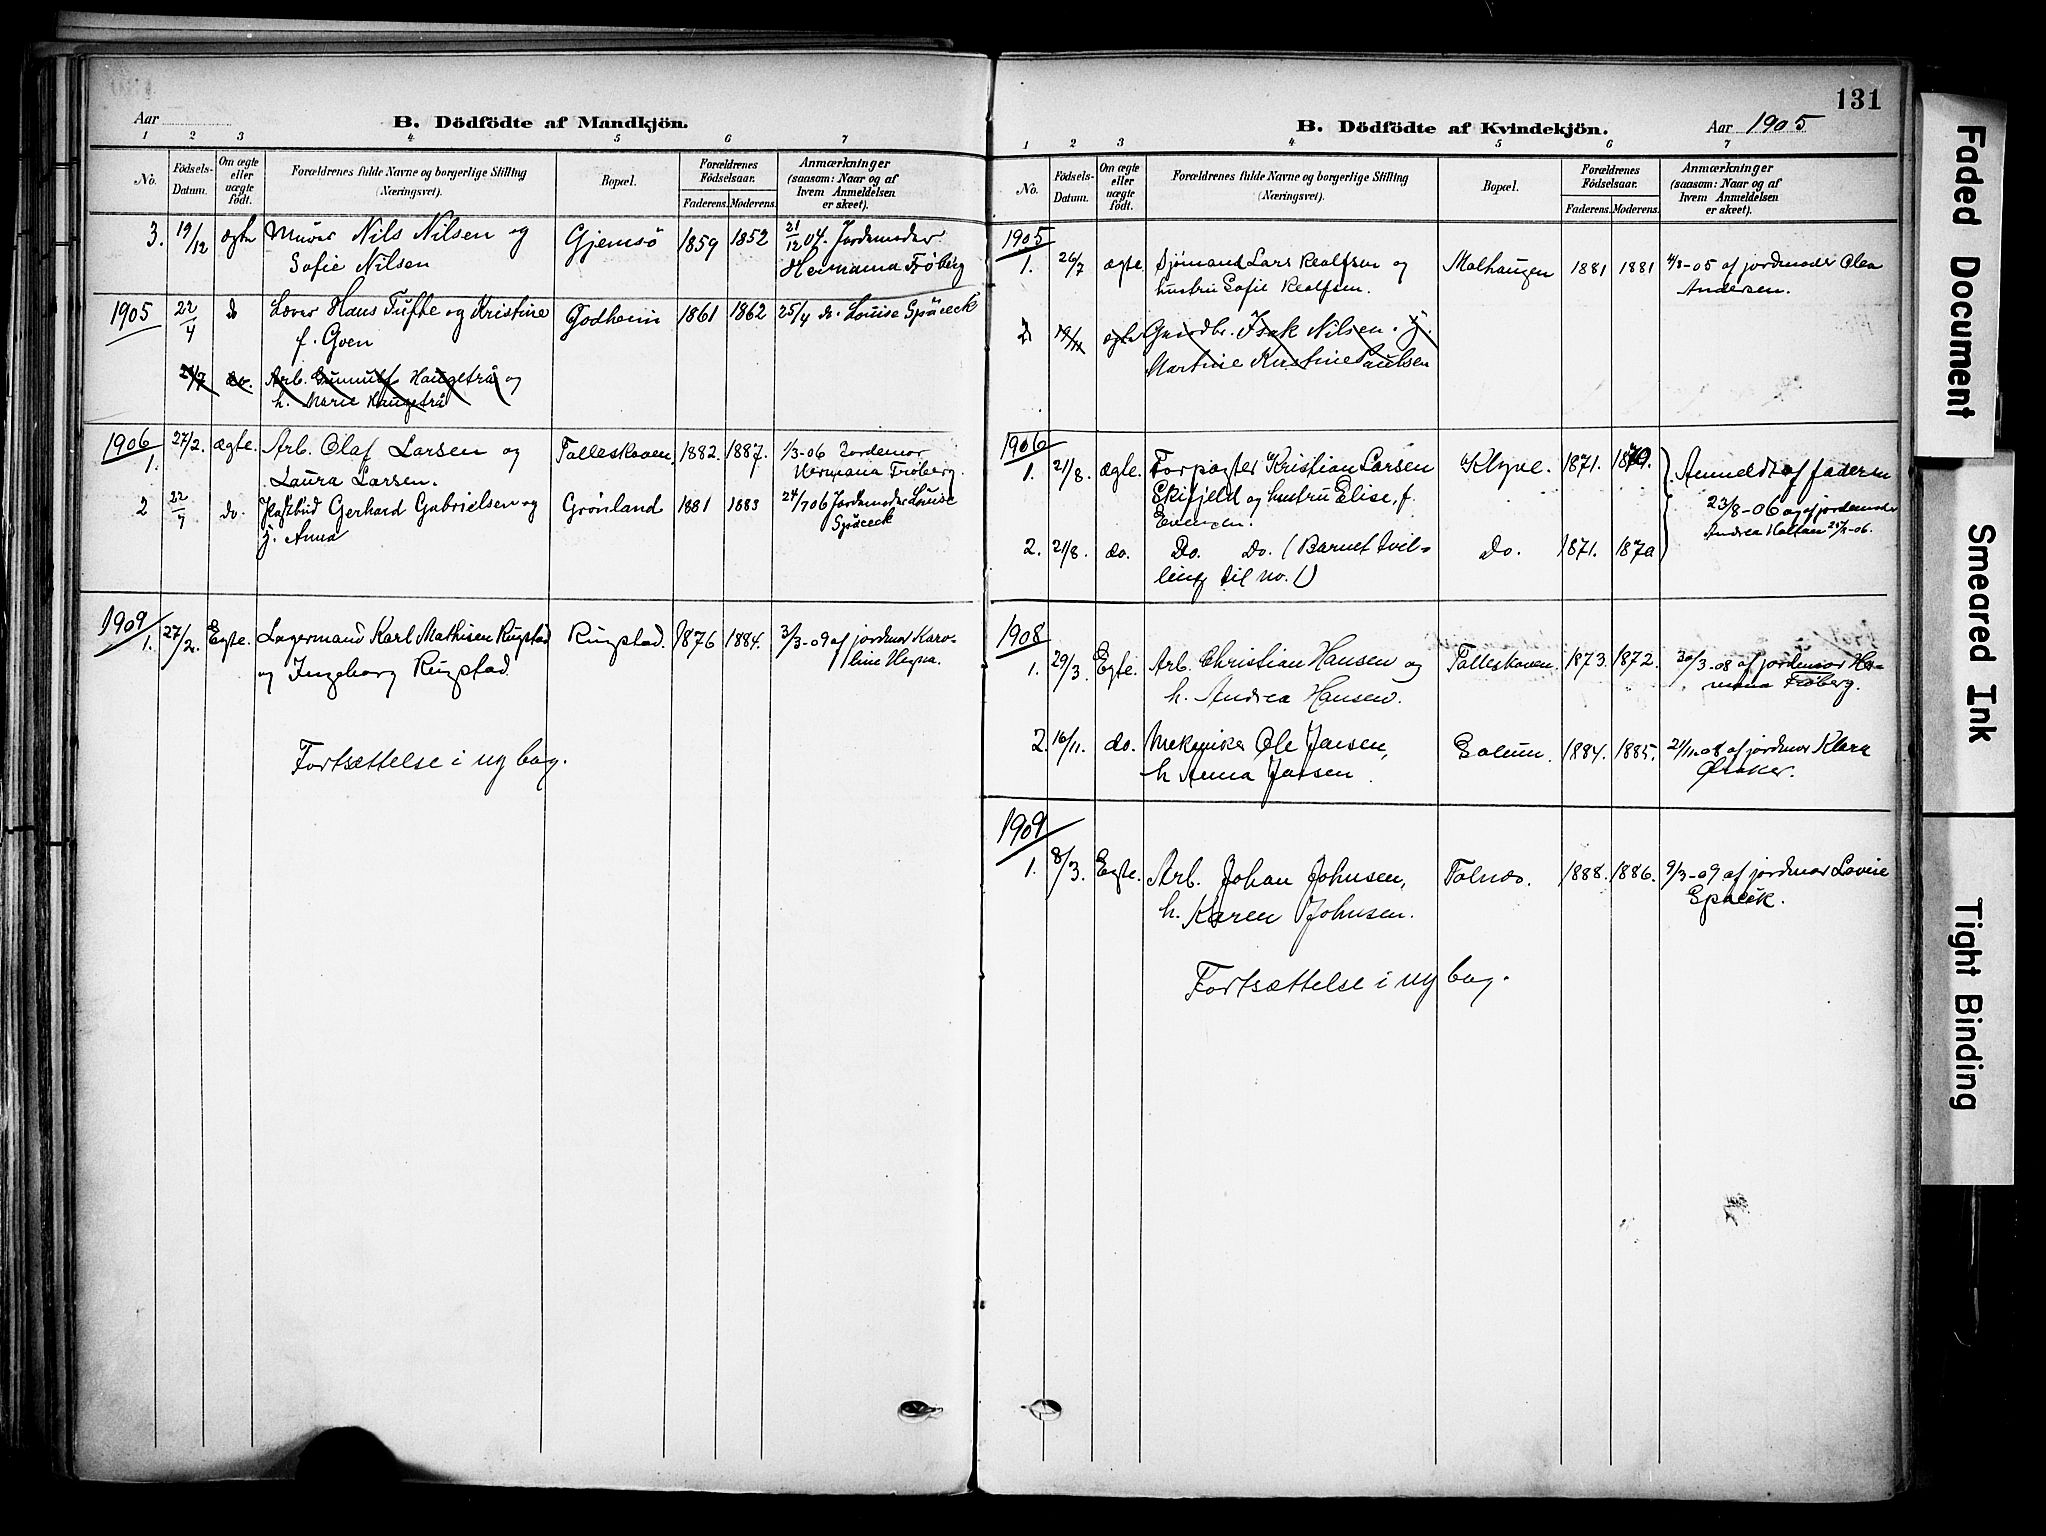 Aar
B. Dödfödte af Mandkjön.
1 2 3 4 5 6 7
No. Födsels-Datum. Om ægte eller uægte födt. Forældrenes fulde Navne og borgerlige Stilling (Næringsvei). Bopæl. Forældrenes Födselsaar. Faderens. Moderens. Anmærkninger (saasom: Naar og af hvem Anmeldelsen er skeet).
3. 19/12 ægte Murer Nils Nilsen og Gjemsö 1859 1852 21/12 04. Jordemoder
Sofie Nilsen Hermana Fröberg
1905 22/4 do Hans Tufte og Kristine Godheim 1861 1862 25/4 do. Louise Späceck
f. Goen
21/7 do. Arb. Gunnulf Haugetrå og
h. Marie Haugetrå
1906
1. 27/2. ægte. Arb. Olaf Larsen og Falleskoven. 1882. 1887. 1/3-06 Jordemor
Laura Larsen. Hermana Fröberg.
2 22/7 do. Postbud Gerhard Gabrielsen og Grönland 1881 1883 24/7 06 Jordemoder Louise
h. Anna Späceck
1909
1. 27/2. Egte. Lagermand Karl Mathisen Rugstad Rugstad. 1876 1884. 3/3-09 af jordmor Karo-
og Ingeborg Rugstad line Hegna.
Fortsættelse i ny bog.
131
B. Dödfödte af Kvindekjön.
Aar 1905
1 2 3 4 5 6 7
No. Födsels-Datum. Om ægte eller uægte födt. Forældrenes fulde Navne og borgerlige Stilling (Næringsvei). Bopæl. Forældrenes Födselsaar. Faderens. Moderens. Anmærkninger (saasom: Naar og af hvem Anmeldelsen er skeet).
1905
1. 26/7 ægte. Sjömand Lars Realfsen og Molhaugen 1881 1881 4/8-05 af jordmoder Olea
hustru Sofie Realfsen. Andersen.
2 19/11 ægte Gaardbr. Isak Nilsen. h.
Martine Kristine Paulsen
1906
1. 21/8. ægte. Forpagter Kristian Larsen Klyve. 1871. 1870. Anmeldt af faderen
Skifjeld og hustru Elise, f. 23/8-06 og af jordemoder
Andrea Holtan
2. 21/8. do. Do. Do. (Barnet tvil- Do. 1871. 1870
ling til no. 1)
1908
1. 29/3. Egte. Arb. Christian Hansen og Falleskoven. 1873. 1872. 30/3-08 af jordemor Her-
h. Andrea Hansen. mana Fröberg.
2. 16/11. do. Mekaniker Ole Jansen, Solum. 1884. 1885. 21/11-08 af jordmor Klara
h Anna Jansen. Øraker.
1909
1. 8/3. Egte. Arb. Johan Johnsen, Folnes. 1888. 1886. 9/3-09 af jordmor Lovise
h. Karen Johnsen. Späcek.
Fortsættelse i ny bog.
Faded Document
Smeared Ink
Tight Binding